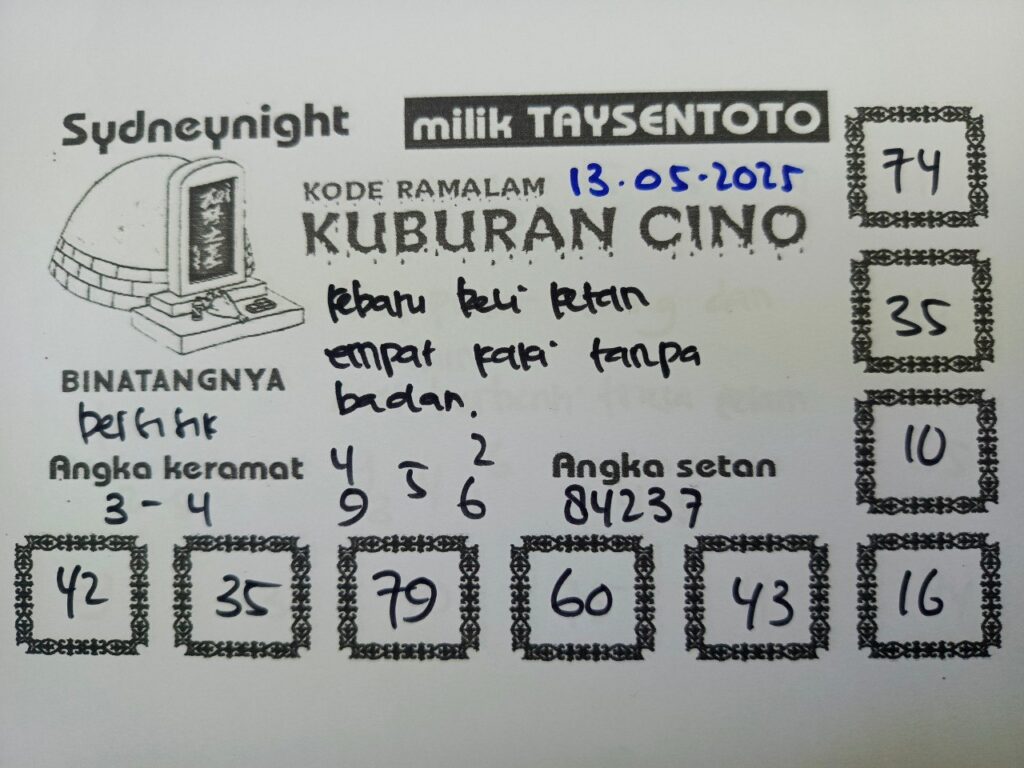 Sydneynight
milik TAYSENTOTO
KODE RAMALAM 13.05.2025
KUBURAN CINO
kebaru beli ketan
empat kaki tanpa
badan.
BINATANGNYA
bersisik
Angka keramat
3 - 4
4 2
5
9 6
Angka setan
84237
74
35
10
42 35 79 60 43 16